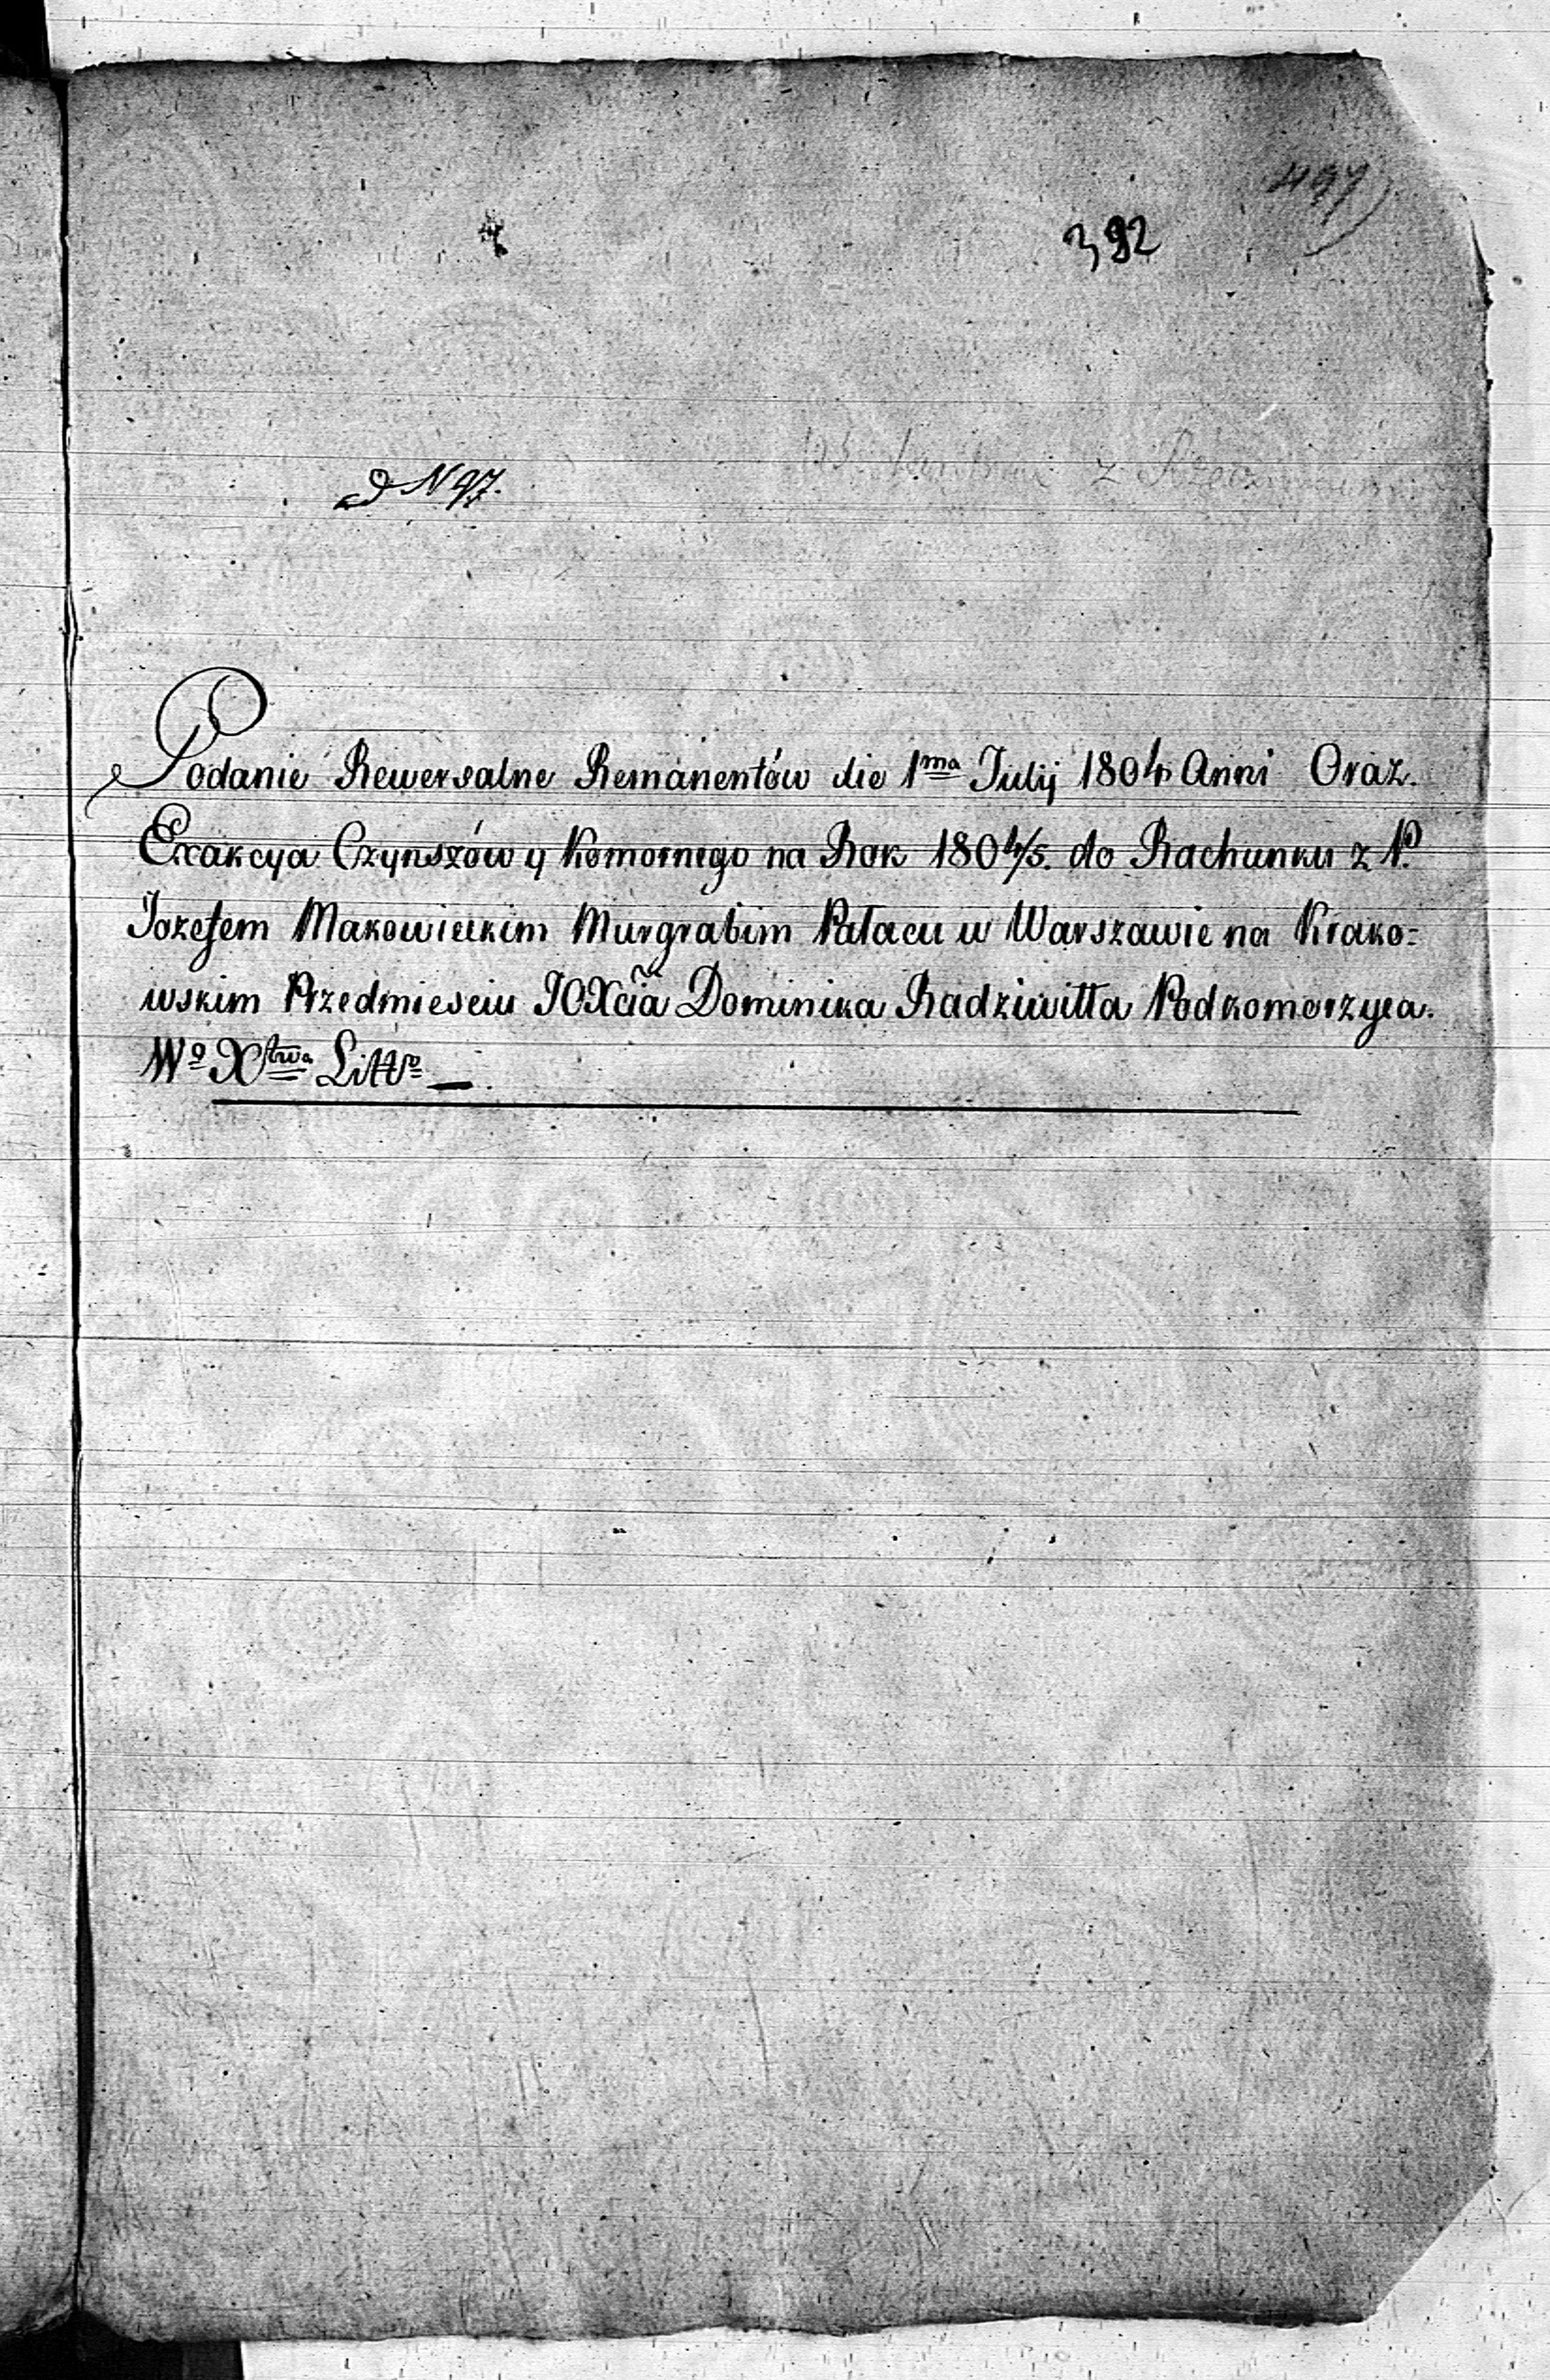 497
392
ad N 97.
Podanie Rewersalne Remanentów die 1ma Julij 1804 Anni Oraz
Exakcya Czynszów y Komornego na Rok 1804/5. do Rachunku z P.
Jozefem Makowieckim Murgrabim Pałacu w Warszawie na Krako=
wskim Przedmiesciu JOXcia Dominika Radziwiłła Podkomorzyca.
Wo Xtwa Litto